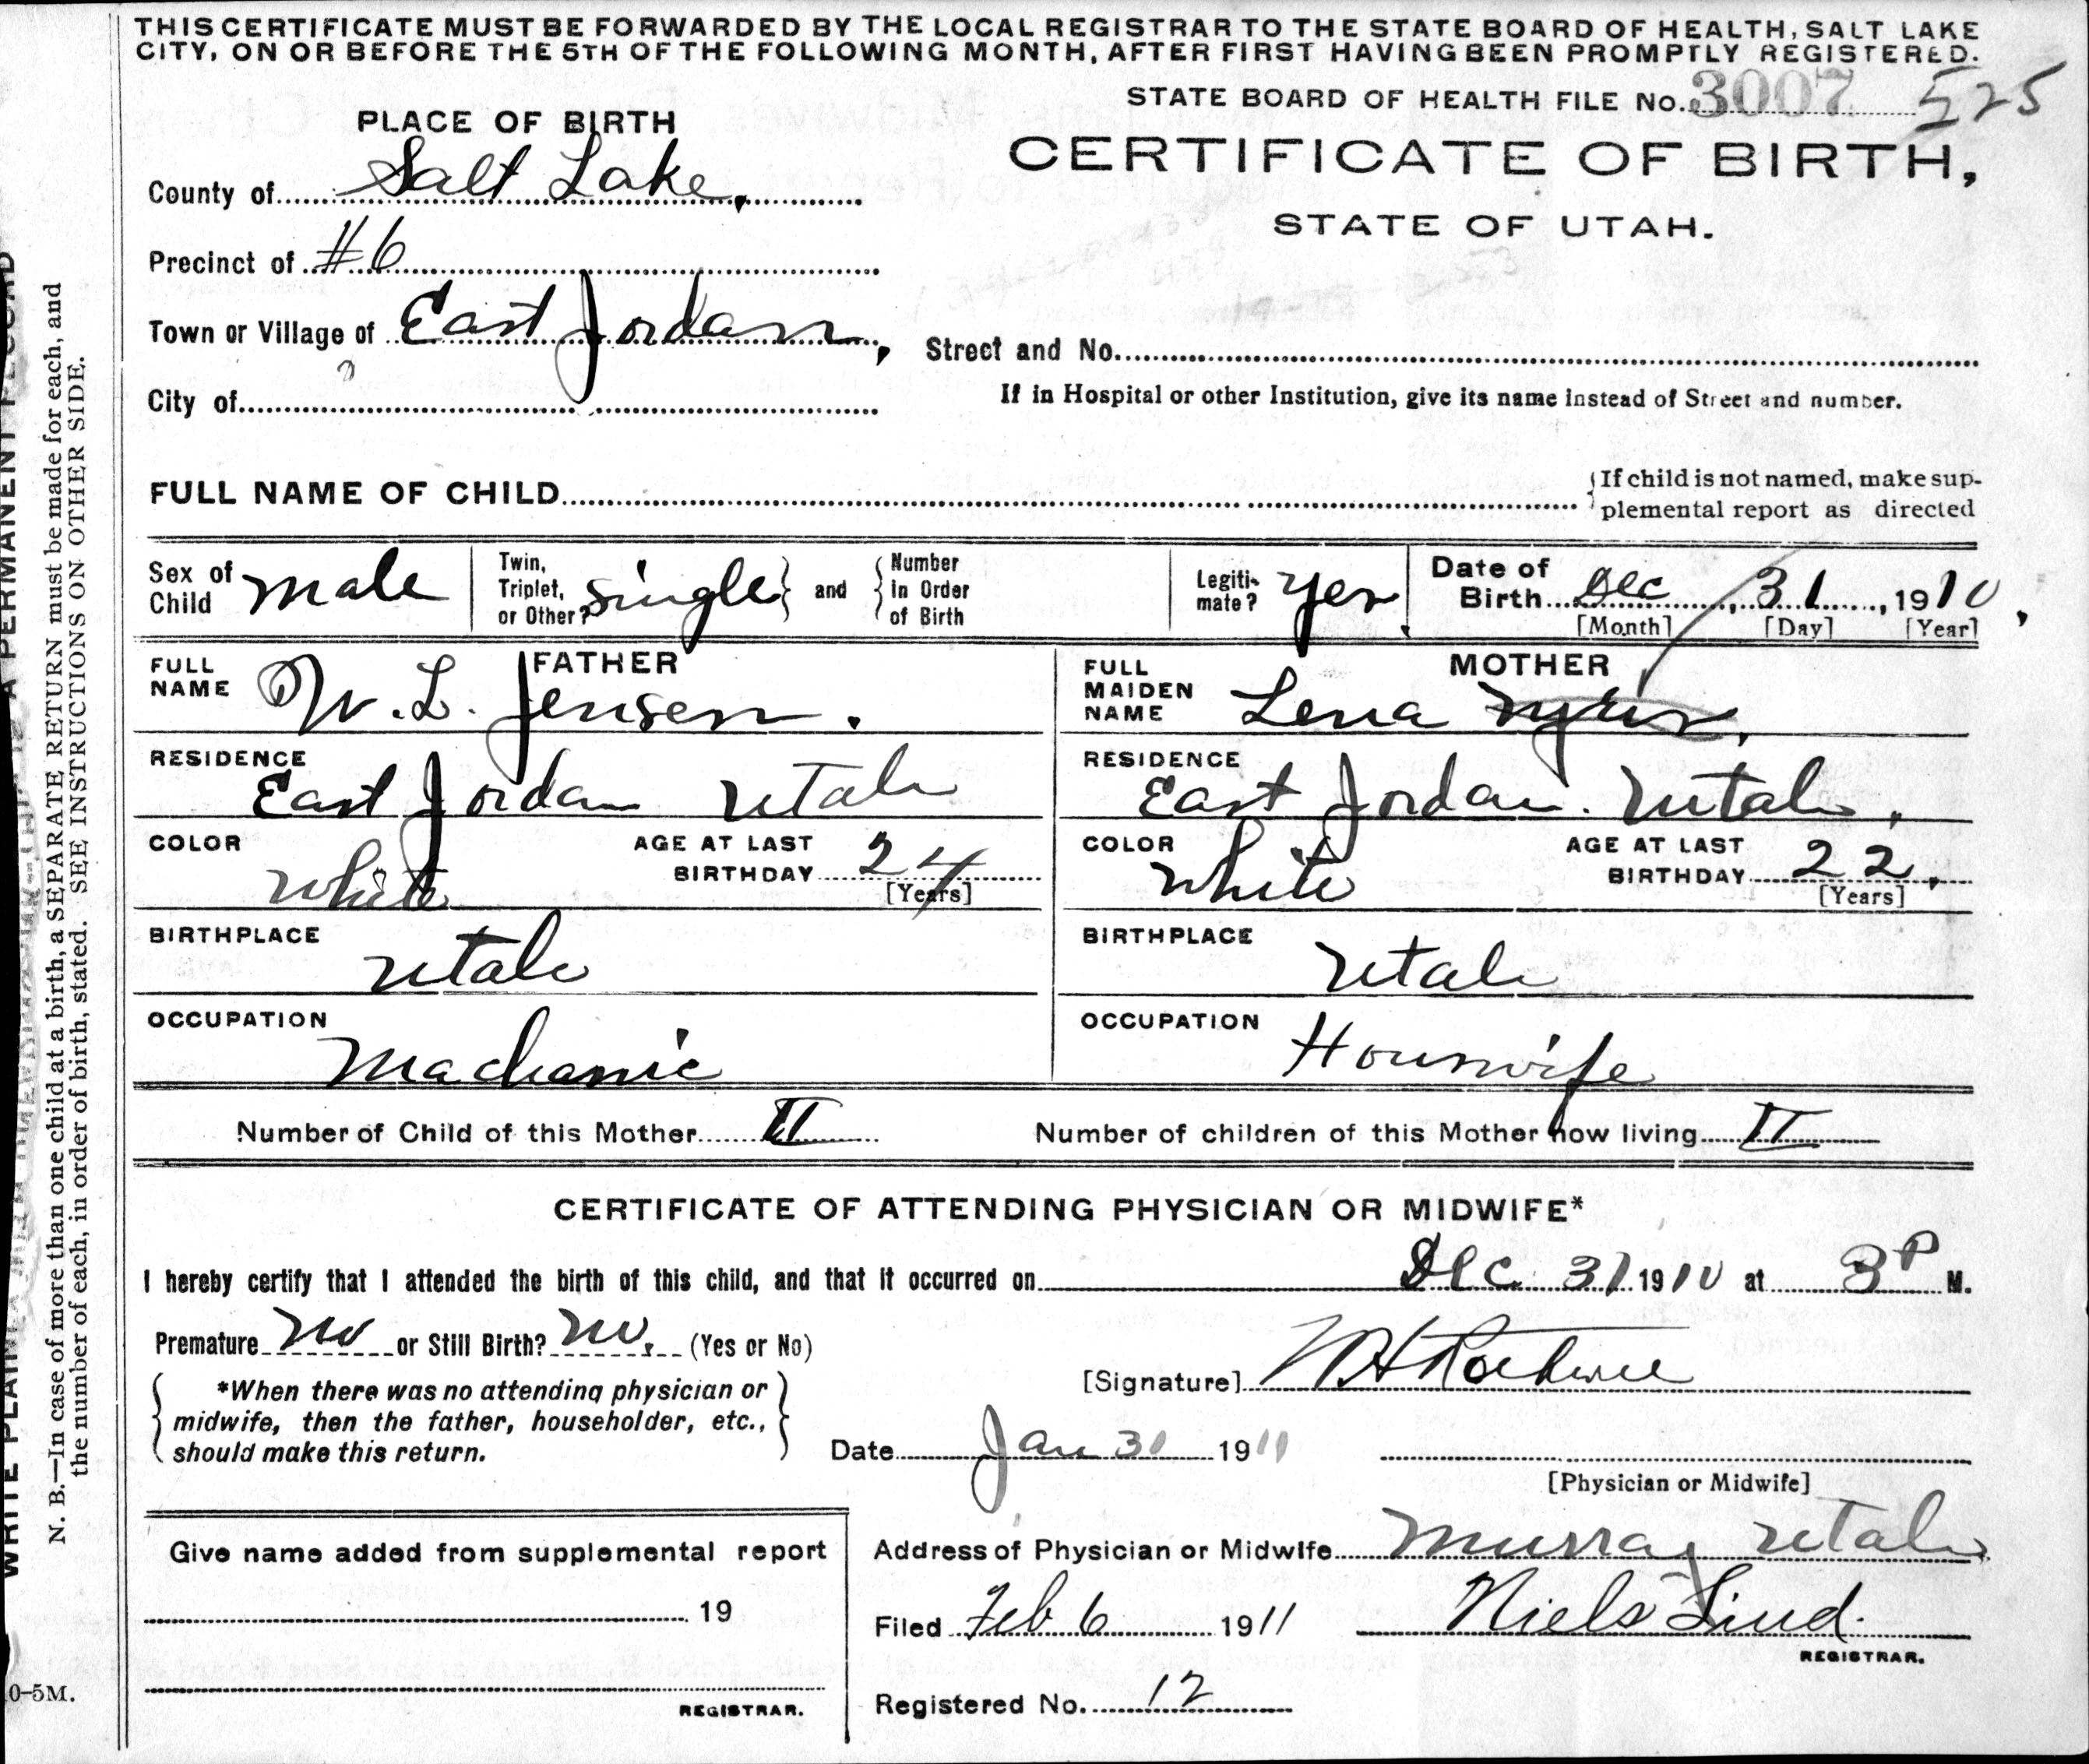 THIS CERTIFICATE MUST BE FORWARDED BY THE LOCAL REGISTRAR TO THE STATE BOARD OF HEALTH, SALT LAKE
CITY, ON OR BEFORE THE 5TH OF THE FOLLOWING MONTH, AFTER FIRST HAVING BEEN PROMPTLY REGISTERED.
STATE BOARD OF HEALTH FILE No. 3007 525
PLACE OF BIRTH
CERTIFICATE OF BIRTH,
STATE OF UTAH.
County of Salt Lake,
Precinct of #6
Town or Village of East Jordan,
Street and No.
City of
If in Hospital or other Institution, give its name instead of Street and number.
FULL NAME OF CHILD
If child is not named, make sup-
plemental report as directed
Sex of Child male
Twin, Triplet, or Other? single and Number in Order of Birth
Legiti-mate? yes
Date of Birth Dec 31, 1910,
[Month] [Day] [Year]
FATHER
FULL NAME W. L. Jensen.
MOTHER
FULL MAIDEN NAME Lena
RESIDENCE East Jordan Utah
RESIDENCE East Jordan. Utah.
COLOR white AGE AT LAST BIRTHDAY 24 [Years]
COLOR white AGE AT LAST BIRTHDAY 22, [Years]
BIRTHPLACE Utah
BIRTHPLACE Utah
OCCUPATION Machanic
OCCUPATION Houswife
Number of Child of this Mother II
Number of children of this Mother now living II
CERTIFICATE OF ATTENDING PHYSICIAN OR MIDWIFE*
I hereby certify that I attended the birth of this child, and that it occurred on Dec 31 1910 at 3 P M.
Premature no or Still Birth? no. (Yes or No)
[Signature]
*When there was no attending physician or
midwife, then the father, householder, etc.,
should make this return.
Date Jan 31 1911
[Physician or Midwife]
Give name added from supplemental report
19
REGISTRAR.
Address of Physician or Midwife Murray Utah
Filed Feb 6 1911 Niels Lind.
REGISTRAR.
Registered No. 12
N. B.—In case of more than one child at a birth, a SEPARATE RETURN must be made for each, and
the number of each, in order of birth, stated. SEE INSTRUCTIONS ON OTHER SIDE.
0-5M.